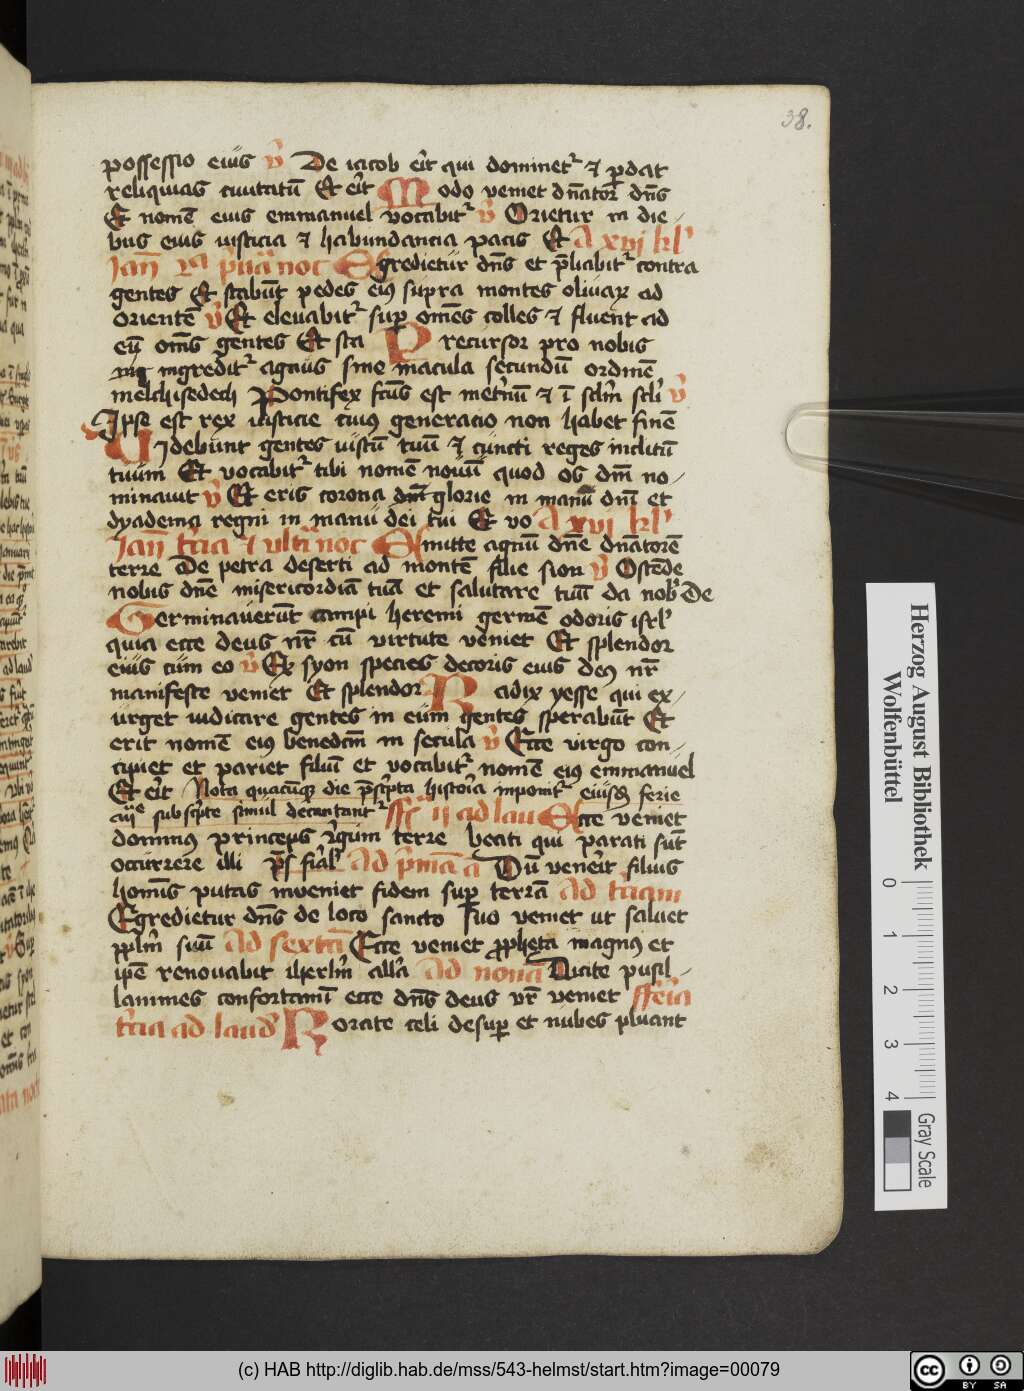 38.
possessio eiꝰ v̄ De iacob er̄it qui dominet᷑ ⁊ ꝑdat
reliquias ciuitatū Et er̄it Modo veniet dn̄ator dn̄s
Et nomē eius emmanuel vocabit᷑ v̄ Orietur in die-
bus eius iusticia ⁊ habundancia pacis Et A xvij kl'
Jan̄ In p̄ma noc Egredietur dn̄s et p̄liabit᷑ contra
gentes Et stabūt pedes eiꝰ supra montes oliuaꝝ ad
orientē v̄ Et eleuabit᷑ suꝑ om̄es colles ⁊ fluent ad
eū om̄s gentes Et sta Precursor pro nobis
ingredit᷑ agnus sine macula secundū ordinē
melchisedech Pontifex fcūs est in et̄nū ⁊ ī sclm̄ scli v̄
Ipse est rex iusticie cuiꝰ generacio non habet finē
Videbunt gentes iustū tuū ⁊ cuncti reges inclitū
tuum Et vocabit᷑ tibi nomē nouū quod os dn̄i no-
minauit v̄ Et eris corona glorie in manū dn̄i et
dyadema regni in manu dei tui Et vo A xvj kl'
Jan̄ t̄cia ⁊ vltīa noc Emitte agnū dn̄e dn̄atorē
terre De petra deserti ad montē filie sion v̄ Ostēde
nobis dn̄e misericordiā tuā et salutare tuū da nob᷑ De
Germinauerūt campi heremi germē odoris isrl'
quia ecce deus nr̄ cū virtute veniet Et splendor
eius cum eo v̄ Ex syon species decoris eius deꝰ nr̄
manifeste veniet Et splendor Radix yesse qui ex-
urget iudicare gentes in eum gentes sperabūt Et
erit nomē eiꝰ benedcm̄ in secula v̄ Ecce virgo con-
cipiet et pariet filiū et vocabit᷑ nomē eiꝰ emmanuel
Et er̄it Nota quacūqꝫ die p̄scpta historia inponit᷑ eiusdꝫ ferie
añe subscpte simul decantant᷑ ff' ij ad lau Ecce veniet
dominꝰ princeps regum terre beati qui parati sūt
occurrere illi p̄s fial' Ad p̄mā a Dū venerit filius
homīs putas inueniet fidem suꝑ terrā Ad t̄ciam
Egredietur dn̄s de loco sancto suo veniet ut saluet
pplm̄ suū Ad sextā Ecce veniet ꝓpheta magnꝰ et
ipē renouabit iherlm̄ all'a Ad nonā Dicite pusil-
lanimes confortaminī ecce dn̄s deus vr̄ veniet ff'eia
t̄cia ad laud' Rorate celi desuꝑ et nubes pluant
Herzog August Bibliothek
Wolfenbüttel
0 1 2 3 4
Gray Scale
(c) HAB http://diglib.hab.de/mss/543-helmst/start.htm?image=00079
cc BY SA